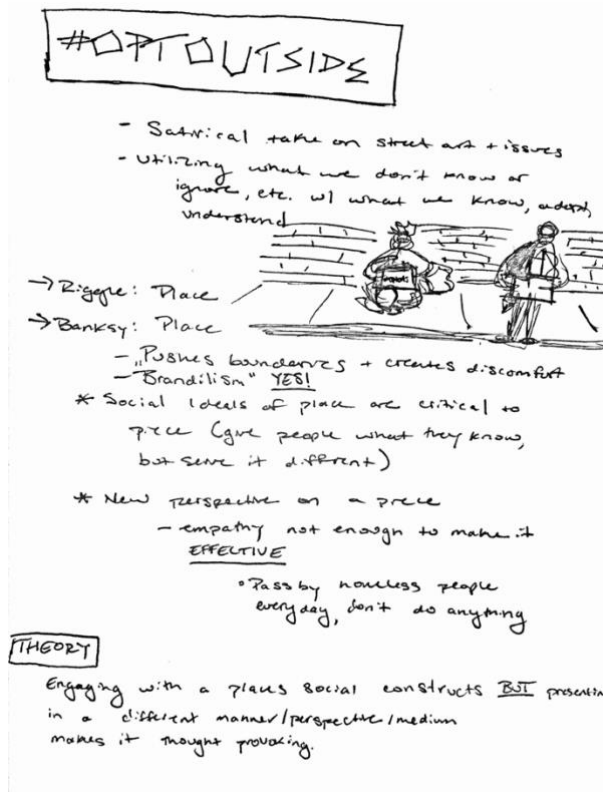 #OPTOUTSIDE
- Satirical take on street art + issues
- Utilizing what we don't know or
ignore, etc. w/ what we know, adopt,
understand
→ Riggle: Place
→ Banksy: Place
- "Pushes boundaries + creates discomfort
- "Brandilism" YES!
* Social ideals of place are critical to
piece (give people what they know,
but serve it different)
* New perspective on a piece
- empathy not enough to make it
EFFECTIVE
° Pass by homeless people
everyday, don't do anything
THEORY
Engaging with a places social constructs BUT presentin
in a different manner/perspective/medium
makes it thought provoking.